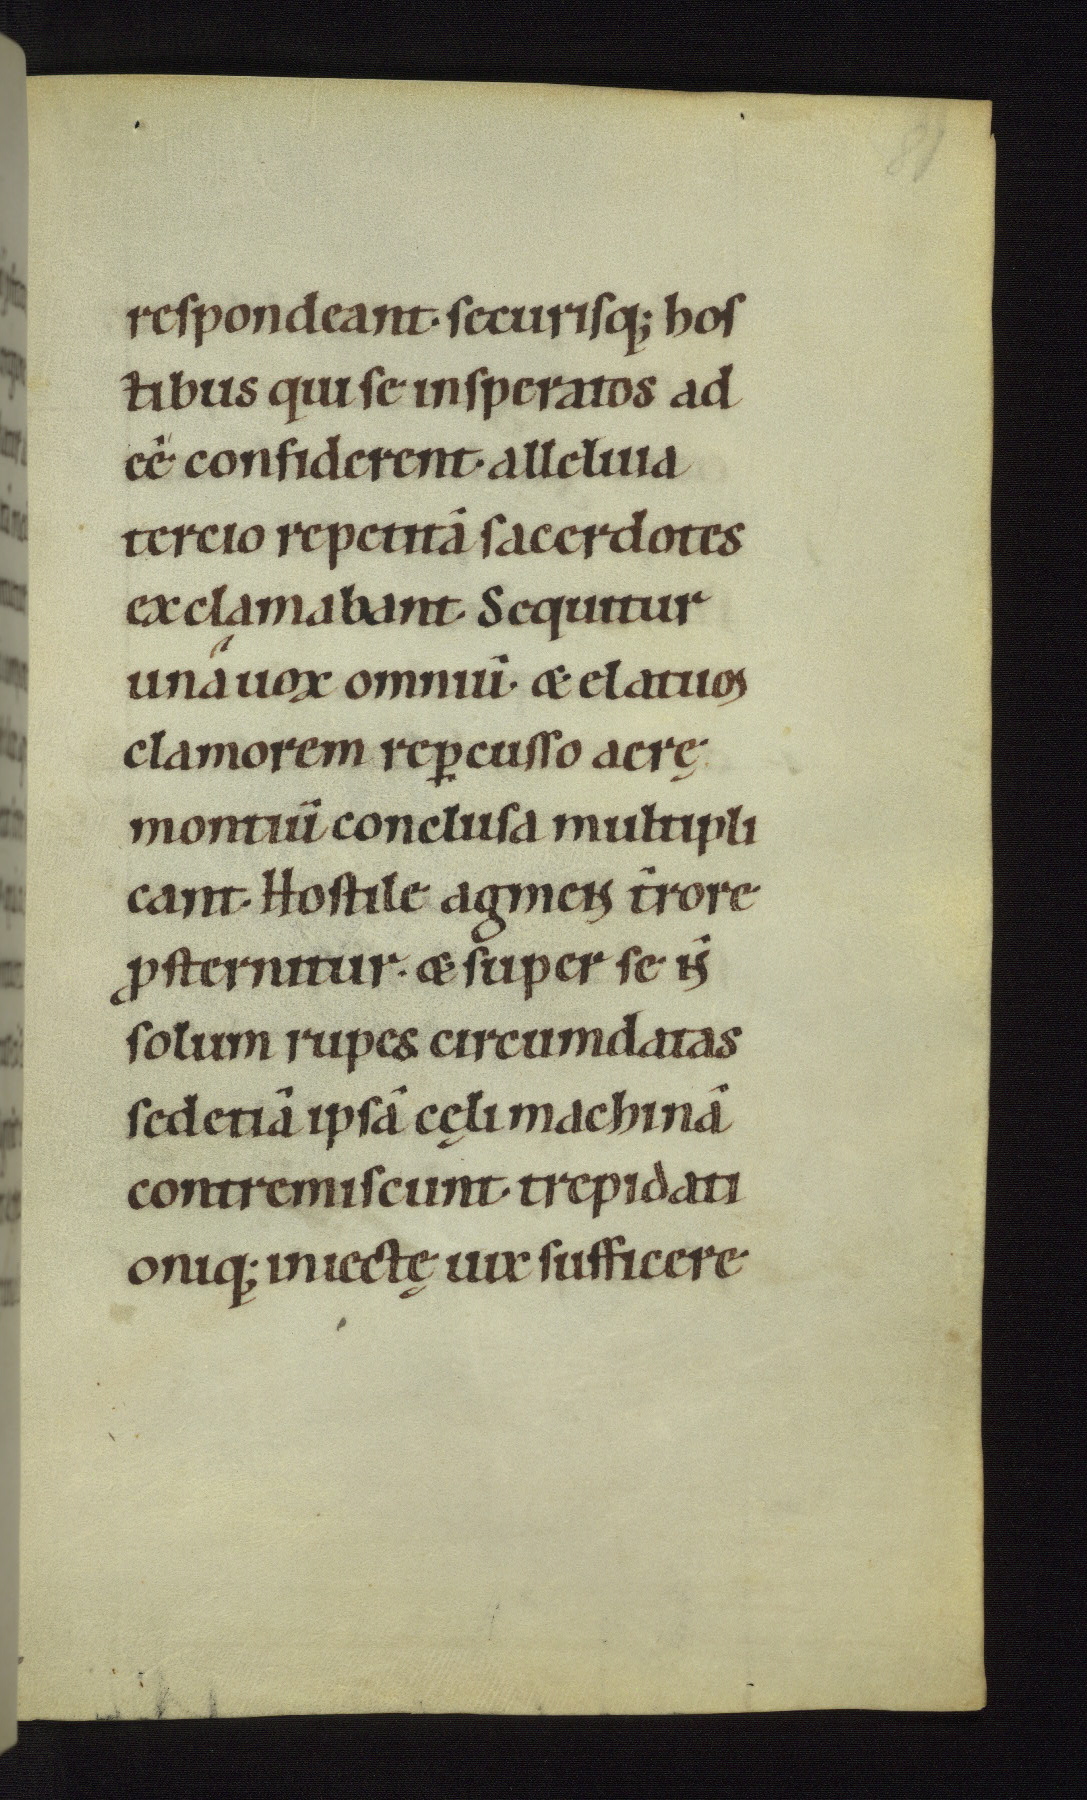 respondeant· securisq; hos
tibus qui se insperatos ad
eē confiderent· alleluia
tercio repetitā sacerdotes
exclamabant· Sequitur
una uox omniū· & elatuꝫ
clamorem reꝑcusso aerę
montiū conclusa multipli
cant· Hostile agmen t̄rore
ꝓsternitur· & super se n̄
solum rupes circumdatas
sed etiā ipsā cęli machinā
contremiscunt· trepidati
oniq; iniectę uix sufficere